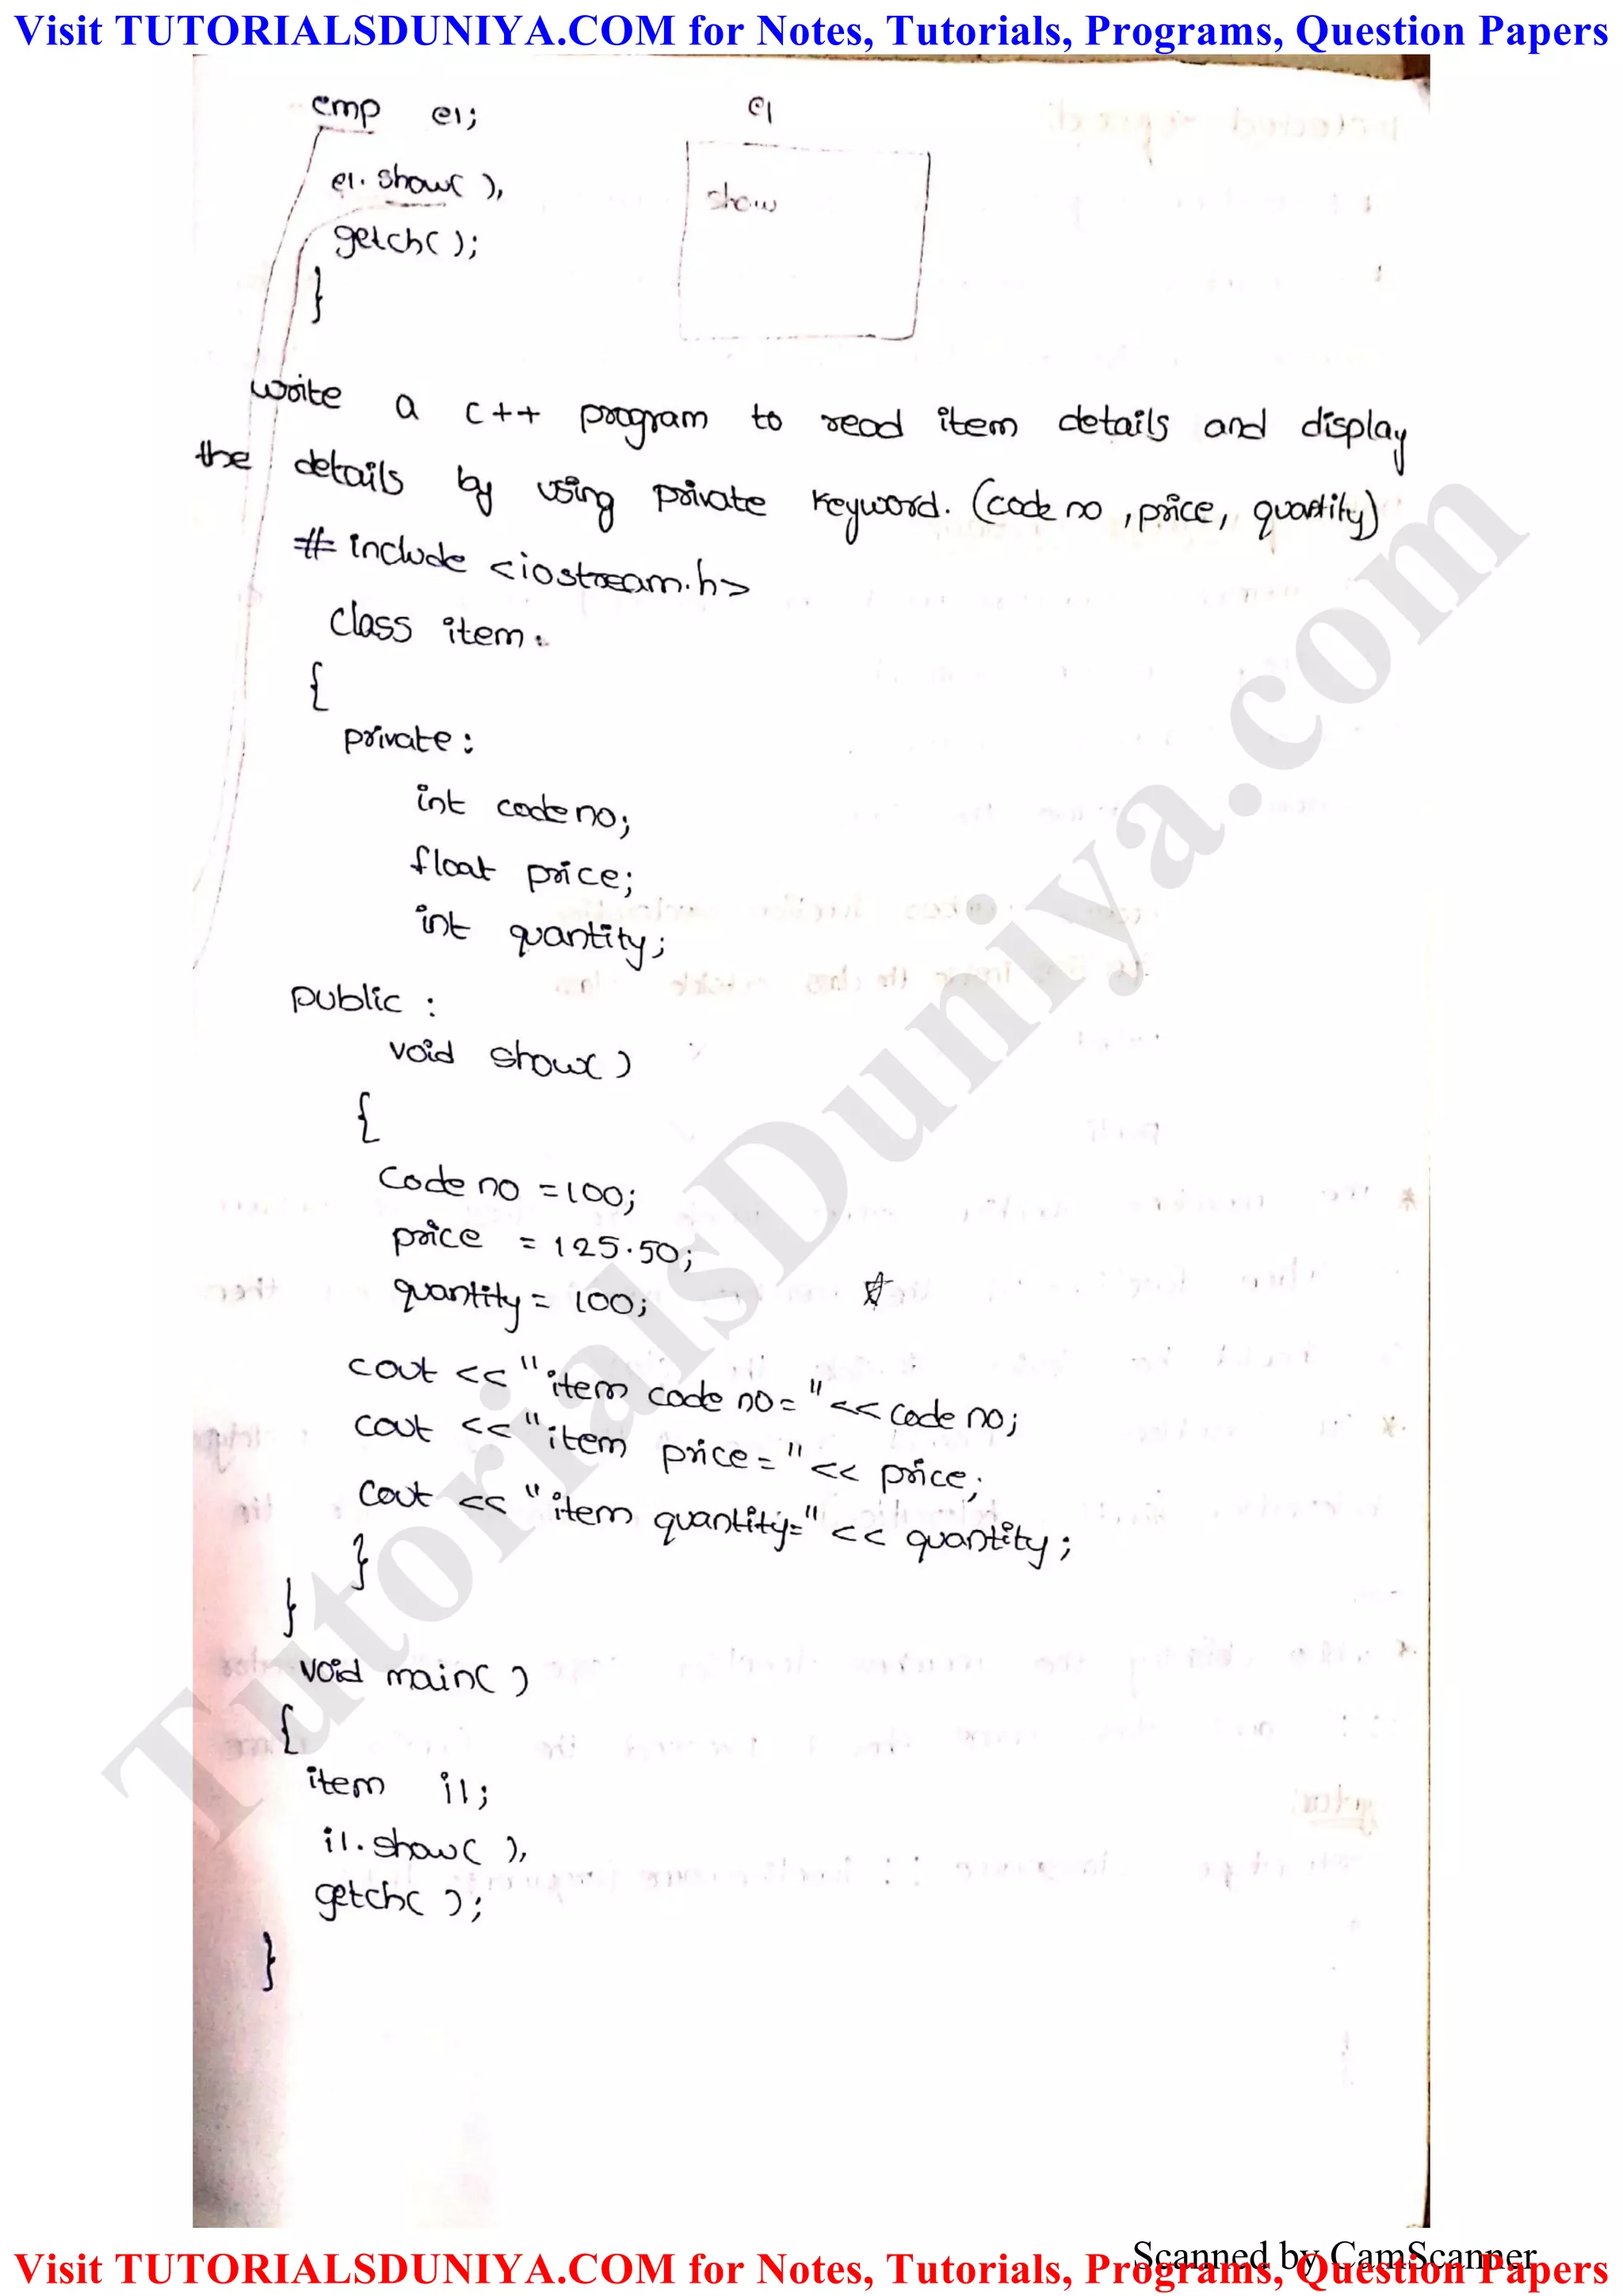 Visit TUTORIALSDUNIYA.COM for Notes, Tutorials, Programs, Question Papers
emp e1; e1
e1.show( ), show
getch( );
}
write a c++ program to read item details and display
the details by using private keyword. (code no ,price, quantity)
# include <iostream.h>
class item
{
private :
int code no;
float price;
int quantity;
public :
void show( )
{
Code no =100;
price = 125.50;
quantity = 100;
cout <<"item code no= "<<code no;
cout <<"item price= "<< price;
cout << "item quantity="<< quantity;
}
}
void main( )
{
item i1;
i1.show( ),
getch( );
}
TutorialsDuniya.com
Scanned by CamScanner
Visit TUTORIALSDUNIYA.COM for Notes, Tutorials, Programs, Question Papers